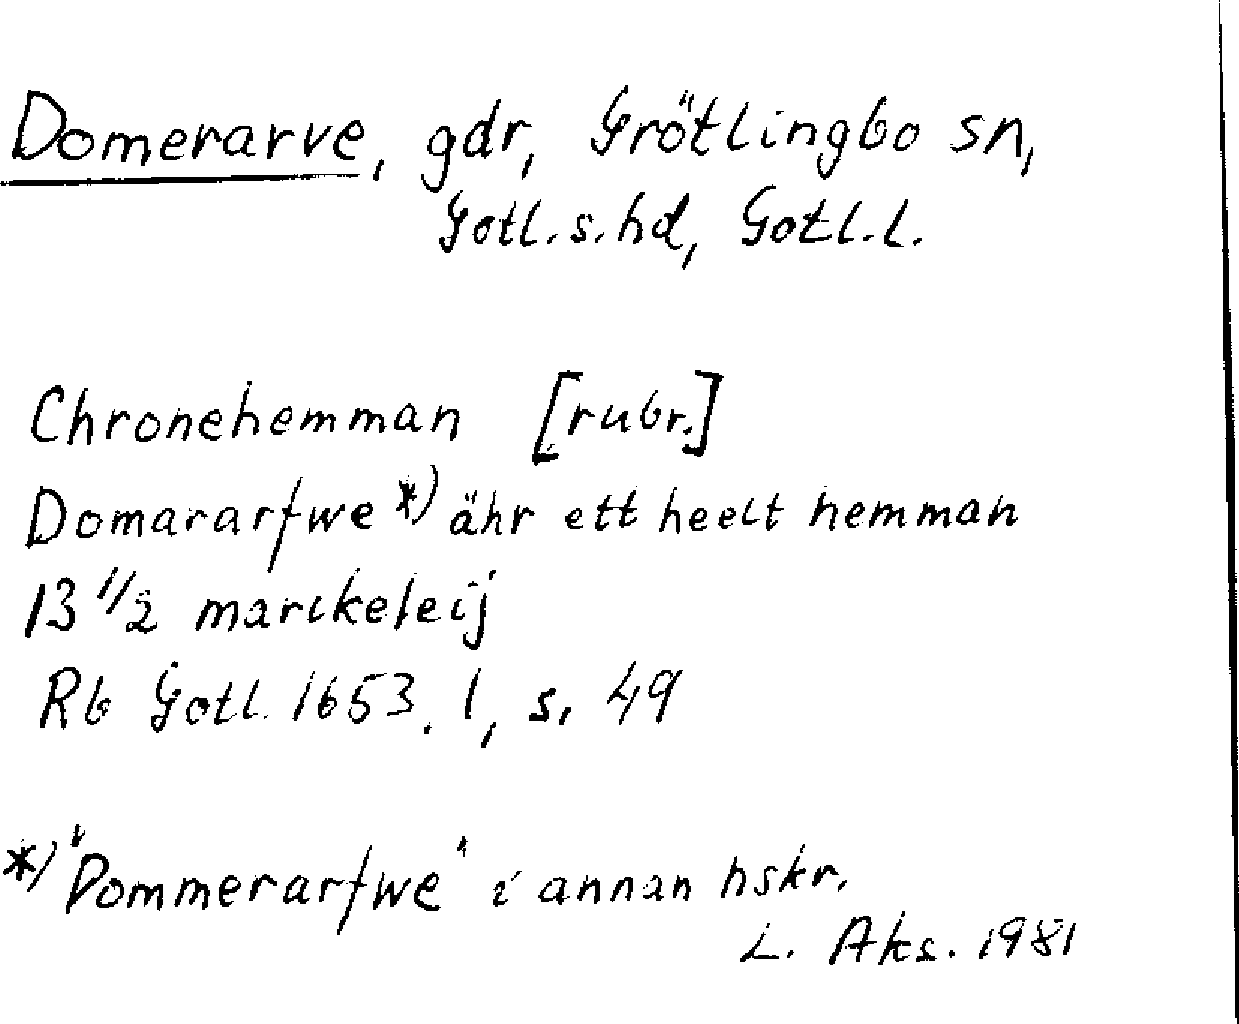 Domerarve, gdr, Grötlingbo sn,
Gotl. s. hd, Gotl. l.
Chronehemman [rubr.]
Domararfwe *) ähr ett heelt hemman
13 1/2 marckeleij
Rb Gotl. 1653. 1, s. 49
*) "Dommerarfwe" i annan hskr.
L. Aks. 1981